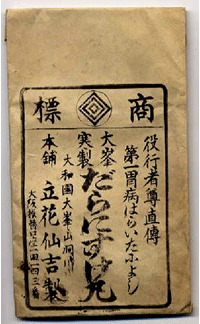 商標
役行者尊直傳
第一胃病はらいたによし
大峯
実製
だらにすけ丸
大和國大峯山洞川
本舗 立花仙吉製
大阪振替口座